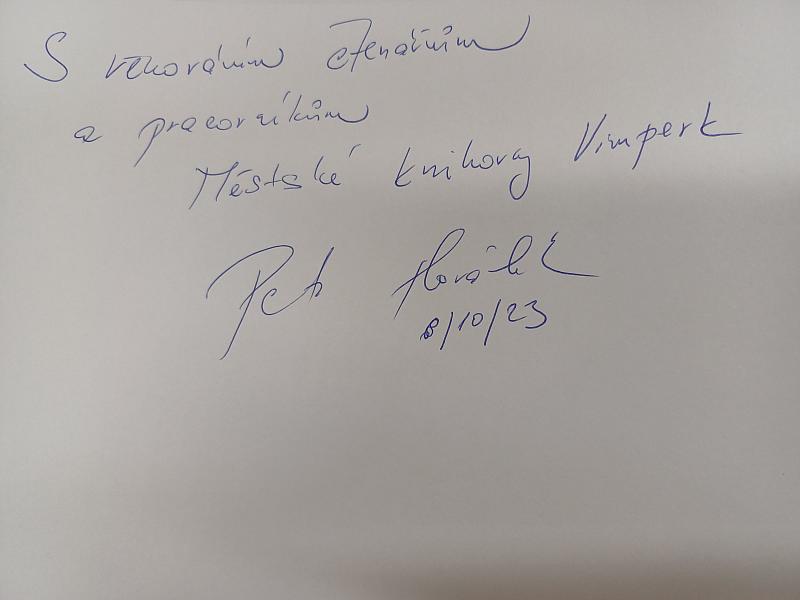 S věnováním čtenářům
a pracovníkům
Městské knihovny Vimperk
Petr Horálek
8/10/23